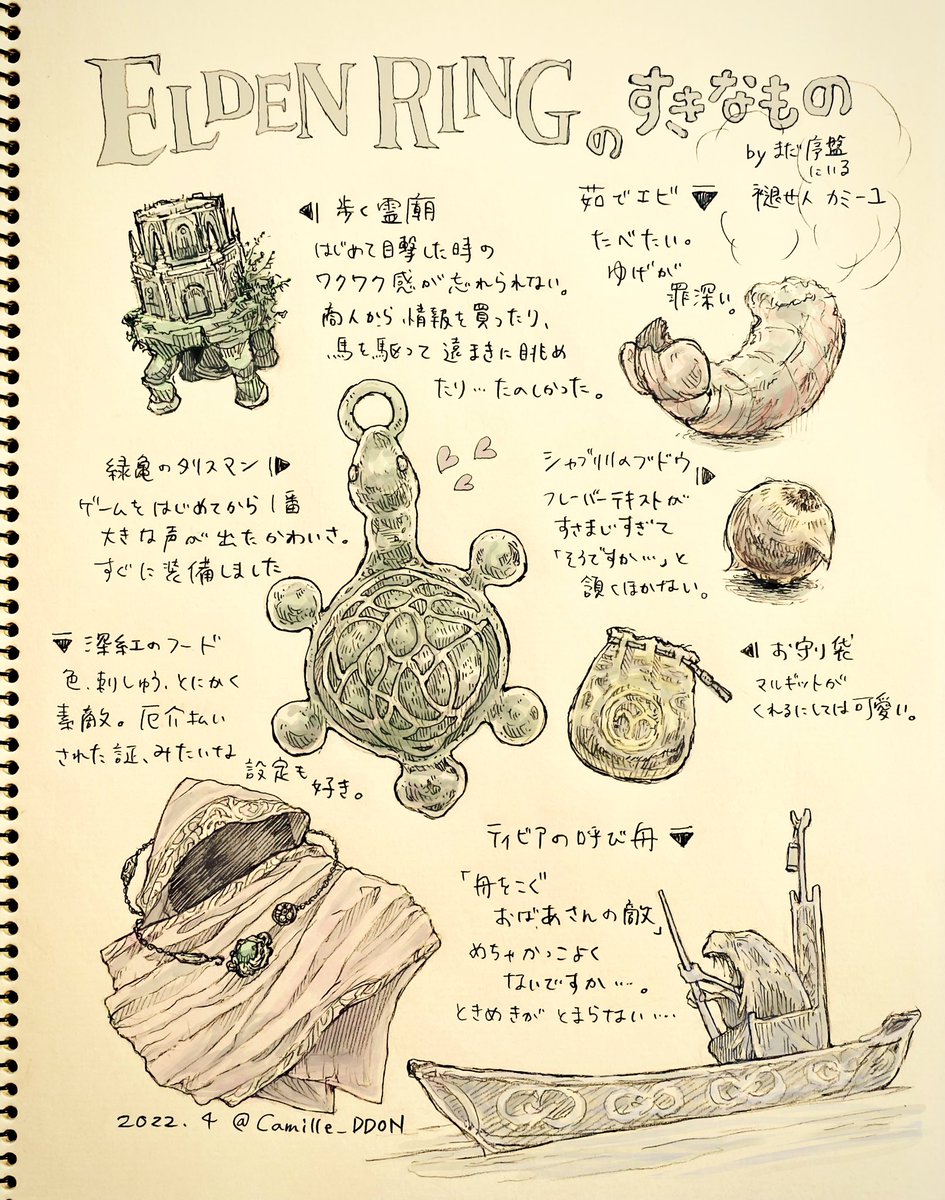 ELDEN RINGのすきなもの
by まだ序盤
にいる
褪せ人 カミーユ
歩く霊廟
はじめて目撃した時の
ワクワク感が忘れられない。
商人から情報を買ったり、
馬を駆って遠まきに眺め
たり…たのしかった。
茹でエビ
たべたい。
ゆげが
罪深い。
緑亀のタリスマン
ゲームをはじめてから1番
大きな声が出たかわいさ。
すぐに装備しました
シャブリリのブドウ
フレーバーテキストが
すさまじすぎて
「そうですか…」と
頷くほかない。
深紅のフード
色、刺しゅう、とにかく
素敵。厄介払い
された証、みたいな
設定も
好き。
お守り袋
マルギットが
くれるにしては可愛い。
ティビアの呼び舟
「舟をこぐ
おばあさんの敵」
めちゃかっこよく
ないですか…。
ときめきがとまらない…
2022.4 @Camille_DDON